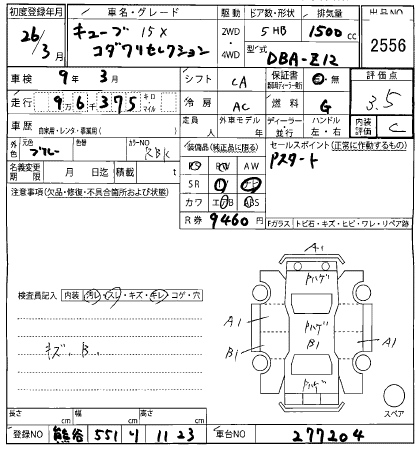 初度登録年月 車名・グレード 駆動 ドア数・形状 排気量 出品NO
26/3月 キューブ 15X コダワリセレクション 2WD・4WD 5 HB 1500cc 2556
型式 DBA-Z12
車検 9年 3月 シフト CA 保証書 新車時ディーラー発行 有・無 評価点
走行 9万6千375 キロ・マイル 冷房 AC 燃料 G 3.5
車歴 自家用・レンタ・事業用( ) 定員 人 外車モデル 年 ディーラー・並行 ハンドル 左・右 内装 C
外色 元色 ブルー 色替 カラーNO RBK
装備品(純正品に限る) セールスポイント(正常に作動するもの)
PS PW AW Pスタート
名義変更期限 月 日迄 積載 t SR ナビ TV
注意事項(欠品・修復・不具合箇所および状態) カワ エアB ABS
R券 9460円 Fガラス トビ石・キズ・ヒビ・ワレ・リペア跡
A1
Pハゲ
検査員記入 内装 汚レ・スレ・キズ・キレ・コゲ・穴
A1 Pハゲ
キズ、B、 B1 B1 A1
Pハゲ
スペア
長さ cm 幅 cm 高さ cm
登録NO 熊谷 551 リ 1123 車台NO 277204